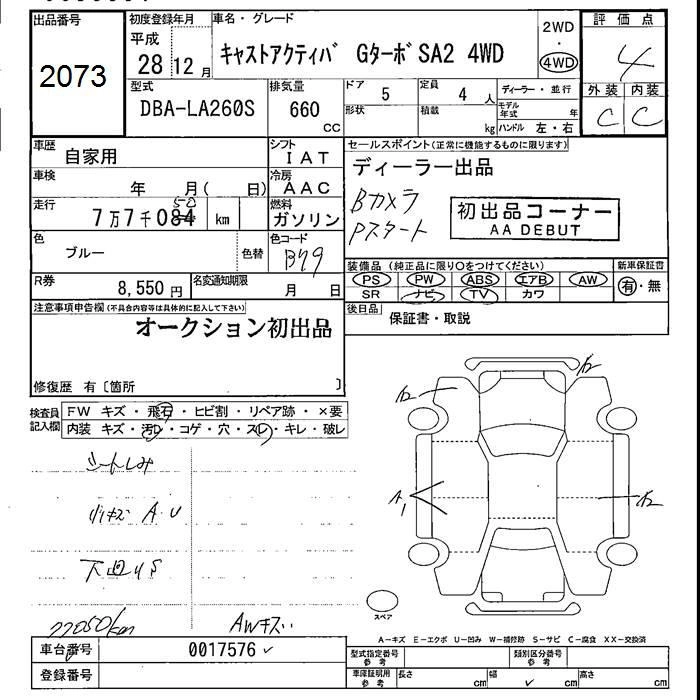 出品番号 初度登録年月 車名・グレード 2WD 評価点
2073 平成 28 12月 キャストアクティバ GターボSA2 4WD 4WD 4
型式 排気量 ドア 5 定員 4人 ディーラー・並行 外装 内装
DBA-LA260S 660 cc 形状 積載 kg モデル年式 年 C C
ハンドル 左・右
車歴 自家用 シフト IAT セールスポイント(正常に機能するものに限ります)
車検 年 月( 日) 冷房 AAC ディーラー出品
走行 7万7千084 50 km 燃料 ガソリン Bカメラ
Pスタート
初出品コーナー
AA DEBUT
色 ブルー 色替 色コード B79
R券 8,550円 名変通知期限 月 日
装備品(純正品に限り〇をつけてください) 新車保証書
PS PW ABS エアB AW 有・無
SR ナビ TV カワ
注意事項申告欄(不具合内容等は具体的に記入して下さい) 後日品 保証書・取説
オークション初出品
修復歴 有〔箇所 〕
検査員記入欄 FW キズ・飛石・ヒビ割・リペア跡・×要
内装 キズ・汚レ・コゲ・穴・スレ・キレ・破レ
シートしみ
小キズ A.U
下廻りS
77050km AWキズ
A2
A2
A1
A2
スペア
A-キズ E-エクボ U-凹み W-補修跡 S-サビ C-腐食 XX-交換済
車台番号 0017576 型式指定番号 参考 類別区分番号 参考
登録番号 車庫証明用 参考 長さ cm 幅 cm 高さ cm